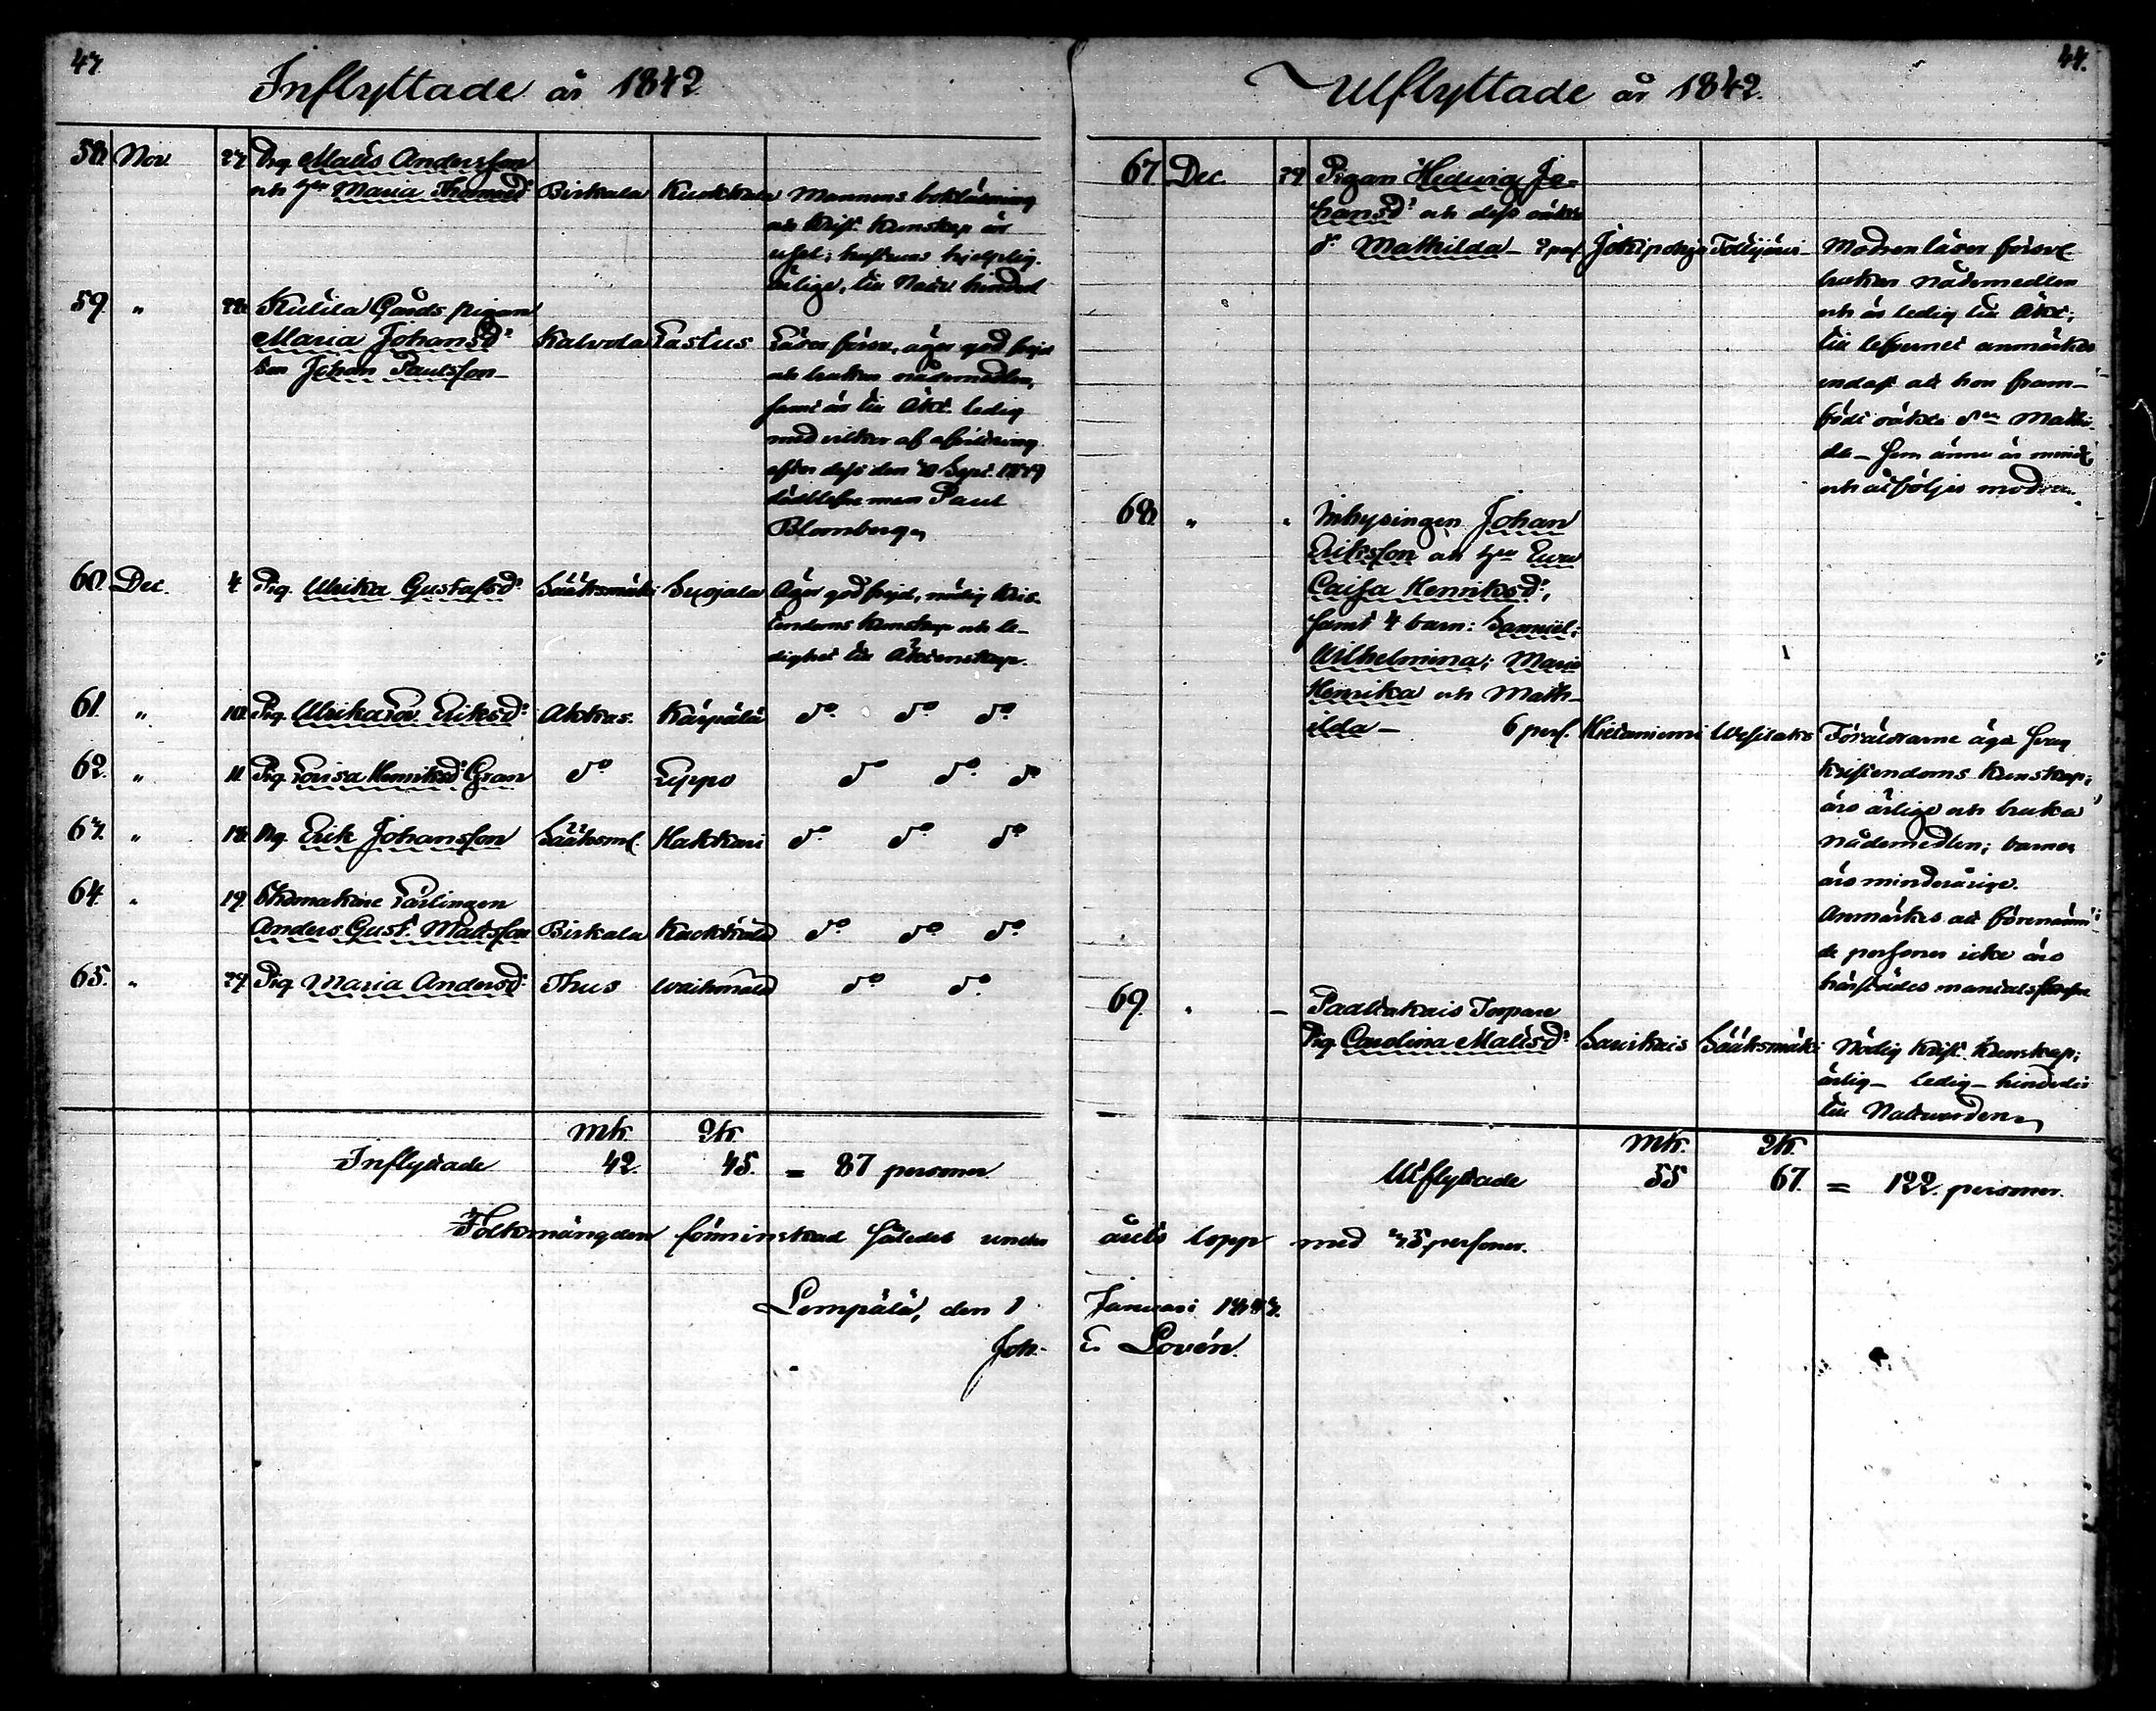 43.
Inflyttade år 1842
58. Nov. 27. Drg. Matts Andersson
och hu Maria Thomasd:r Birkala Kuokkala Mannens bokläsning
och krist. kunskap är
usel; hustruns hjelplig.
ärlige, till Nattv. hindrad
59. " 28. Kulila Gårds pigan
Maria Johansd:r Kalvola Lastus Läser försv., äger god frejd
Son Johan Paulsson – och brukar nådemedlen,
samt är till Äkt. ledig
med vilkor af afvittring
efter dess den 20 Sept. 1839
dödblefne man Paul
Blomberg
60. Dec. 4 Pig. Ulrika Gustafsd:r Sääksmäki Suojala Äger god frejd, nödig Kris-
tendoms kunskap och le-
dighet till Äktenskap.
61. " 10. Pig. Ulrika Lov. Eriksd:r Akkas. Kärpälä do do do
62. " 11. Pig. Lovisa Henriksd:r Gran do Leppo do do do
63. " 18. Drg. Erik Johansson Sääksm. Hakkari do do do
64. " 19. Skomakare Lärlingen
Anders Gust. Mattsson Birkala Kuokkala do do do
65. " 29. Pig. Maria Andersd:r Thus Waihmala do do
Mk. Qk.
Inflyttade 42. 45. = 87 personer.
Folkmängden förminskad således under
Lempälä, den 1
Joh.
44.
Utflyttade år 1842.
67 Dec. 29 Pigan Hedvig Jo-
hansd:r och dess oäkta
d. Mathilda – 2 pers. Jokipohja Tottijärvi – Modren läser försv.
brukar Nådemedlen
och är ledig till Äkt;
till lefvernet anmärkes
endast att hon fram-
födt oäkta d:n Mathil-
da – som ännu är mind.
och åtföljer modren.
68. " " Inhysingen Johan
Eriksson och hu Eva
Caisa Henriksd:r,
samt 4 barn: Samuel;
Wilhelmina; Maria
Henrika och Math-
ilda – 6 pers. Hietaniemi Wesilaks Föräldrarne äga svag
kristendoms kunskap;
äro ärlige och bruka
nådemedlen; barnen
äro minderårige.
Anmärkes att förenämn-
de personer icke äro
härstädes mantalsskrefne
69. " – Paaltakais Torpare
Pig. Carolina Mattsd:r Savikais Sääksmäki Nödig krist. kunskap;
ärlig – ledig – hinderlös
till Nattvarden
Mk. Qk.
Utflyttade 55 67. = 122. personer.
årets lopp med 35 personer.
Januari 1843.
E. Lovén.